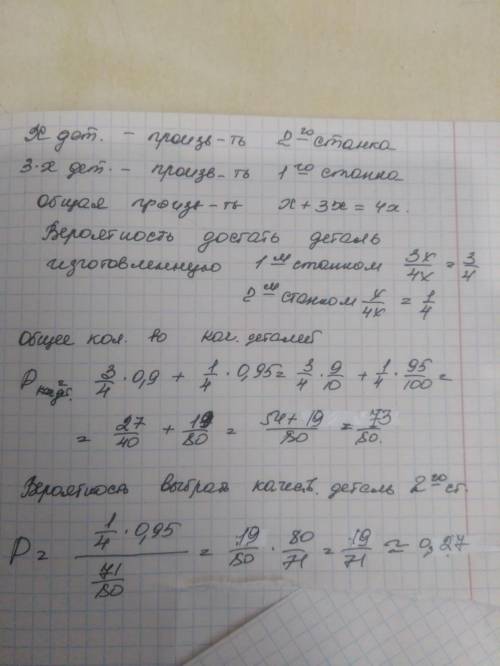 X дет. – произв-ть 2го станка
3·x дет. – произв-ть 1го станка
Общая произв-ть x + 3x = 4x.
Вероятность достать деталь
изготовленную 1м станком 3x/4x = 3/4
2м станком x/4x = 1/4
Общее кол. во кач. деталей
Pкач.дет. = 3/4 · 0,9 + 1/4 · 0,95 = 3/4 · 9/10 + 1/4 · 95/100 =
= 27/40 + 19/80 = 54+19/80 = 73/80.
Вероятность выбрать качеств. деталь 2го ст.
P = 1/4 · 0,95 / 71/80 = 19/80 · 80/71 = 19/71 ≈ 0,27